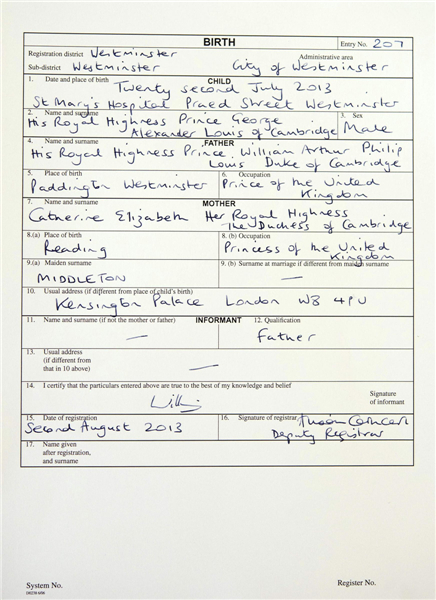 BIRTH
Entry No. 207
Registration district Westminster
Administrative area
Sub-district Westminster City of Westminster
1. Date and place of birth CHILD
Twenty second July 2013
St Mary's Hospital Praed Street Westminster
2. Name and surname 3. Sex
His Royal Highness Prince George
Alexander Louis of Cambridge Male
4. Name and surname FATHER
His Royal Highness Prince William Arthur Philip
Louis Duke of Cambridge
5. Place of birth 6. Occupation
Paddington Westminster Prince of the United
Kingdom
7. Name and surname MOTHER
Catherine Elizabeth Her Royal Highness
The Duchess of Cambridge
8.(a) Place of birth 8. (b) Occupation
Reading Princess of the United
Kingdom
9.(a) Maiden surname 9. (b) Surname at marriage if different from maiden surname
MIDDLETON —
10. Usual address (if different from place of child's birth)
Kensington Palace London W8 4PU
11. Name and surname (if not the mother or father) INFORMANT 12. Qualification
— Father
13. Usual address
(if different from
that in 10 above) —
14. I certify that the particulars entered above are true to the best of my knowledge and belief
Signature
of informant
15. Date of registration 16. Signature of registrar
Second August 2013
Deputy Registrar
17. Name given
after registration,
and surname
System No. Register No.